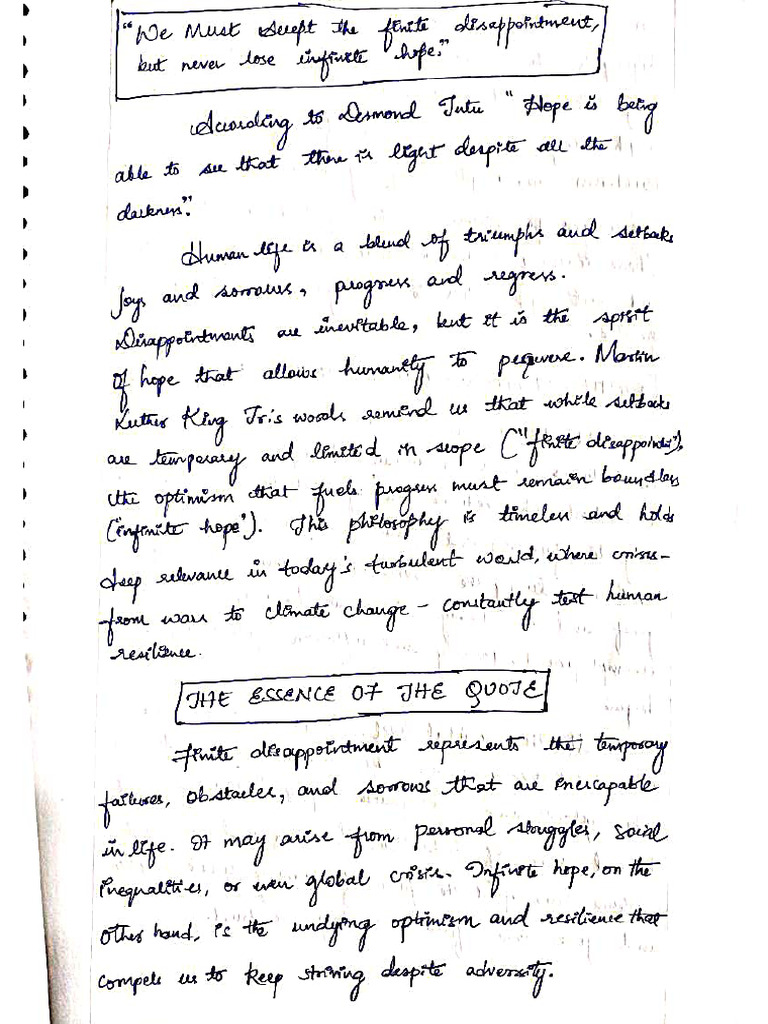 "We Must Accept the finite disappointment,
but never lose infinite hope."
According to Desmond Tutu "Hope is being
able to see that there is light despite all the
darkness".
Human life is a blend of triumphs and setbacks
joys and sorrows, progress and regress.
Disappointments are inevitable, but it is the spirit
of hope that allows humanity to persevere. Martin
Luther King Jr's words remind us that while setbacks
are temporary and limited in scope ("finite disappointment"),
the optimism that fuels progress must remain boundless
("infinite hope"). This philosophy is timeless and holds
deep relevance in today's turbulent world, where crisis-
from wars to climate change - constantly test human
resilience.
THE ESSENCE OF THE QUOTE
Finite disappointment represents the temporary
failures, obstacles, and sorrows that are inescapable
in life. It may arise from personal struggles, social
inequalities, or even global crisis. Infinite hope, on the
other hand, is the undying optimism and resilience that
compels us to keep striving despite adversity.